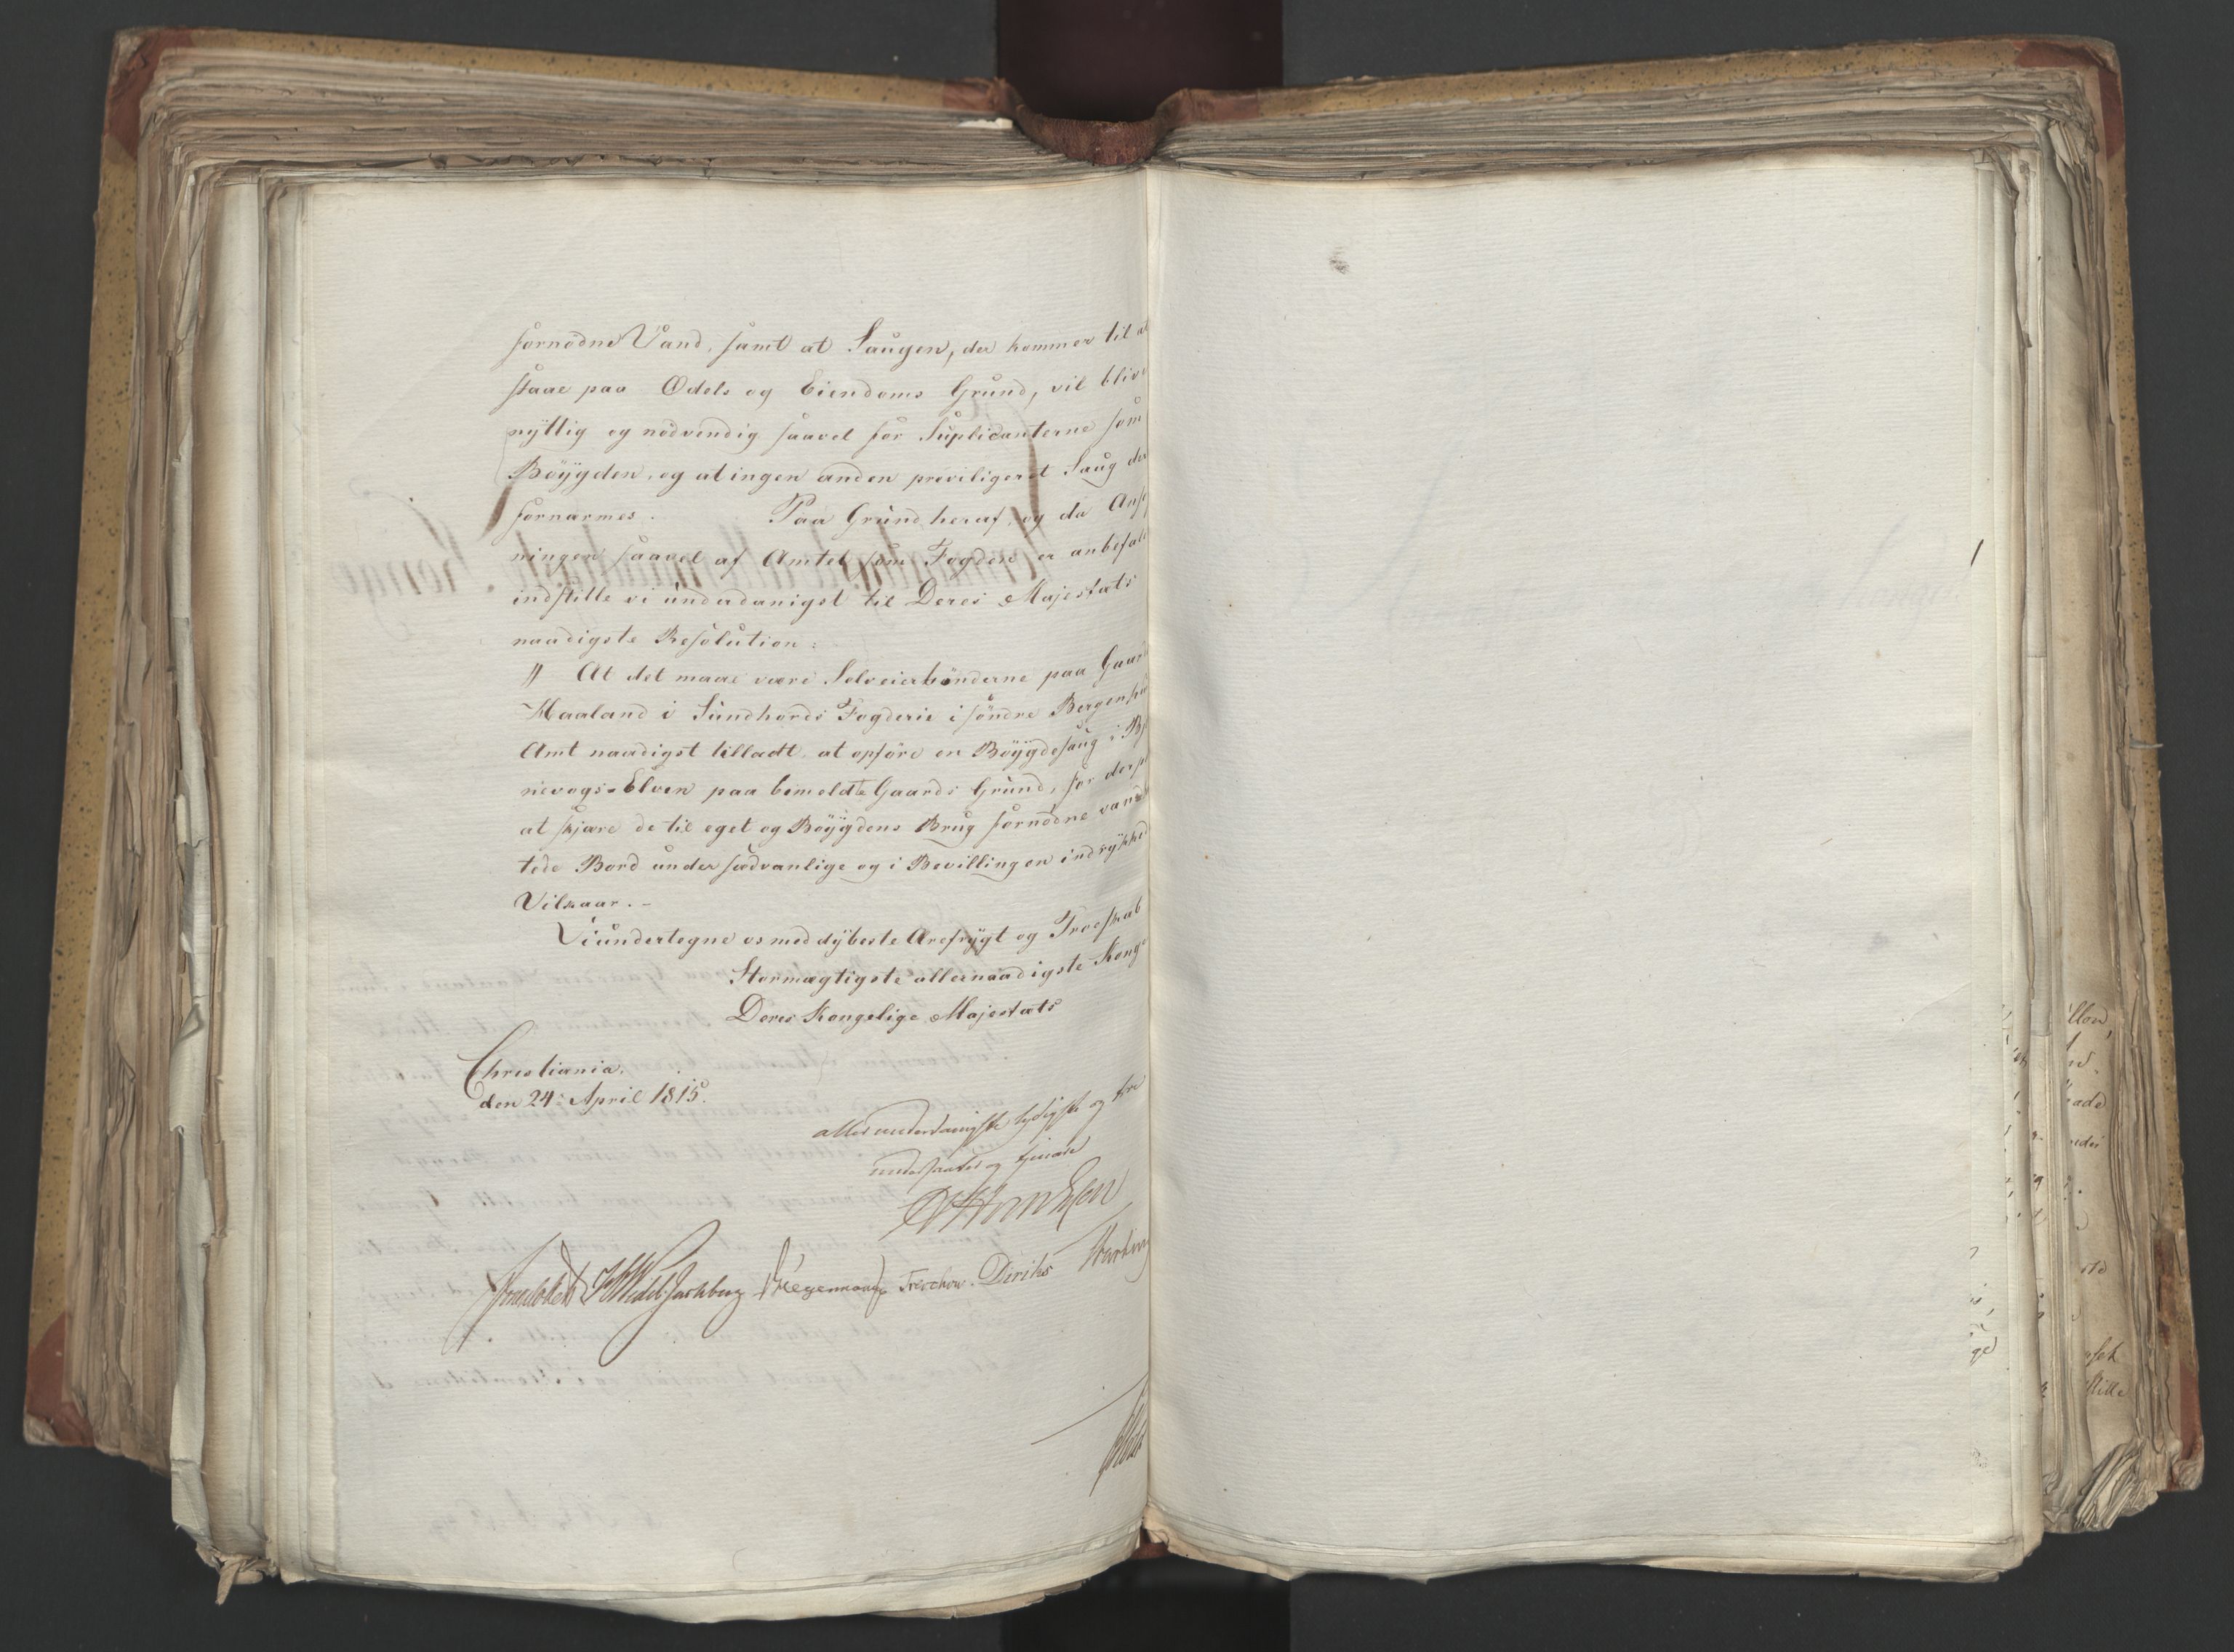 fornødne Vand, samt at Saugen, der kommer til at
staae paa Odels og Eiendoms Grund, vil blive
nyttig og nødvendig saavel for Suplicanterne som
Bøÿgden, og at ingen anden priviligeret Saug der
fornærmes. Paa Grund heraf, og da Ansø
ningen saavel af Amtet som Fogden er anbefalet
indstille vi underdanigst til Deres Majestæts
naadigste Resolution:
" At det maae være Selveierbønderne paa Gaard
Haaland i Sundhords Fogderie i søndre Bergenhu
Amt naadigst tilladt, at opføre en Bøÿgdesaug i
nevogs-Elven paa bemeldte Gaards Grund, for derp
at skjære de til eget og Bøÿgdens Brug fornødne vand
tede Bord under sædvanlige og i Bevillingen indrÿkked
Vilkaar. -
Vi undertegne os med dÿbeste Ærefrÿgt og Troeskab
Stormægtigste allernaadigste Konge
Deres Kongelige Majestæts
Christiania,
den 24. April 1815.
allerunderdanigste lydigste og tro
undersaatter og tjenere
Sommerhielm Wedel Jarlsberg Hegermann Treschow. Diriks